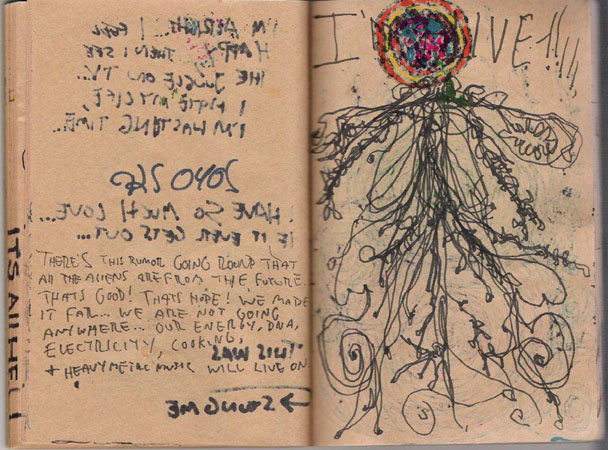 I'M ALRIGHT... I FEEL
HAPPY THEN I SEE
THE JUNGLE ON TV...
I HATE MY LIFE,
I'M WASTING TIME...
I HAVE SO MUCH LOVE...
IF IT EVER GETS OUT...
THERE'S THIS RUMOR GOING ROUND THAT
All THE ALIENS ARE FROM THE FUTURE.
THATS GOOD! THATS HOPE! WE MADE
IT FAR... WE ARE NOT GOING
ANYWHERE... OUR ENERGY, DNA,
ELECTRICITY, COOKING,
+ HEAVY METAL MUSIC WILL LIVE ON
ITS All
I' IVE!!!!